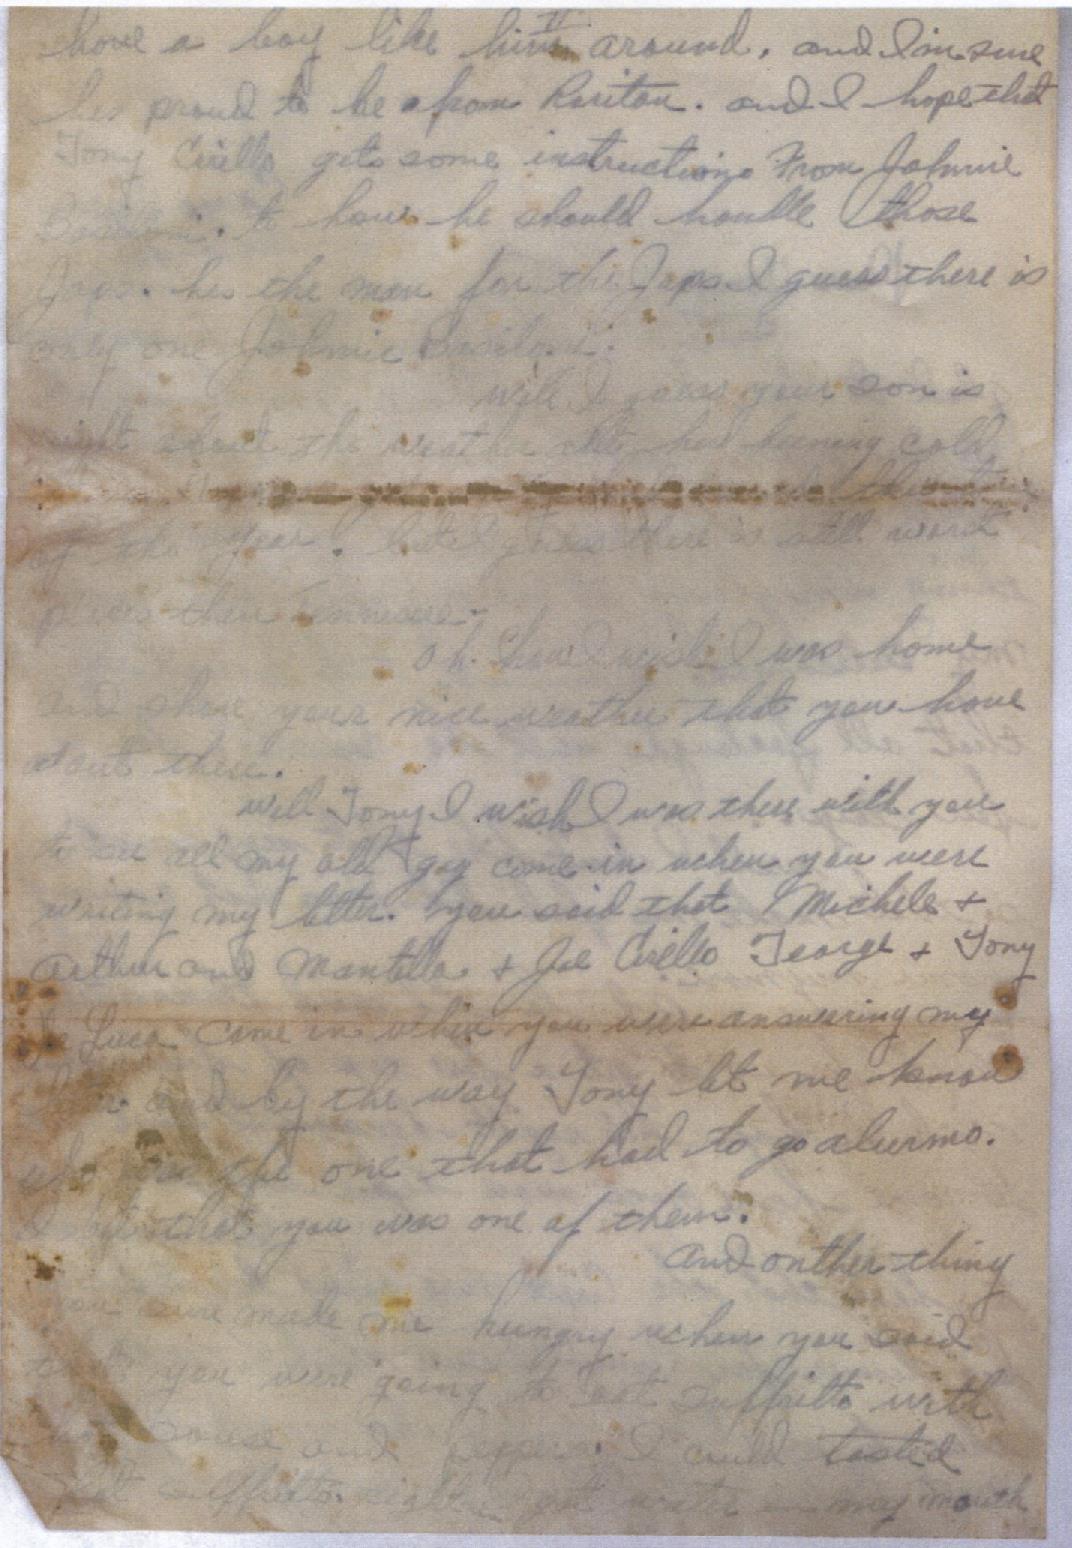 have a boy like him around. and I'm sure
he's proud to be a from Raritan. and I hope that
Tony Cirello gets some instructions From Johnnie
to how he should handle those
Japs. he's the man for the Japs I guess there is
only one Johnnie Basilone.
well I guess your son is
right about the weather cold
of the year. but I guess there is still worst
places then Tennessee.
oh. how I wish I was home
and share your nice weather that you have
out there.
well Tony I wish I was there with you
to see all my old gag come in when you were
writing my letter. you said that Michele +
Arthur and Mantella + Joe Cirello George + Tony
Luca come in when you were answering my
and by the way Tony let me know
who was the one that had to go alurmo.
I bet that you was one of them.
and onther thing
you sure made me hungry when you said
that you were going to eat suffritto with
hot sause and peppers. I could tasted
that suffritto right water in my mouth